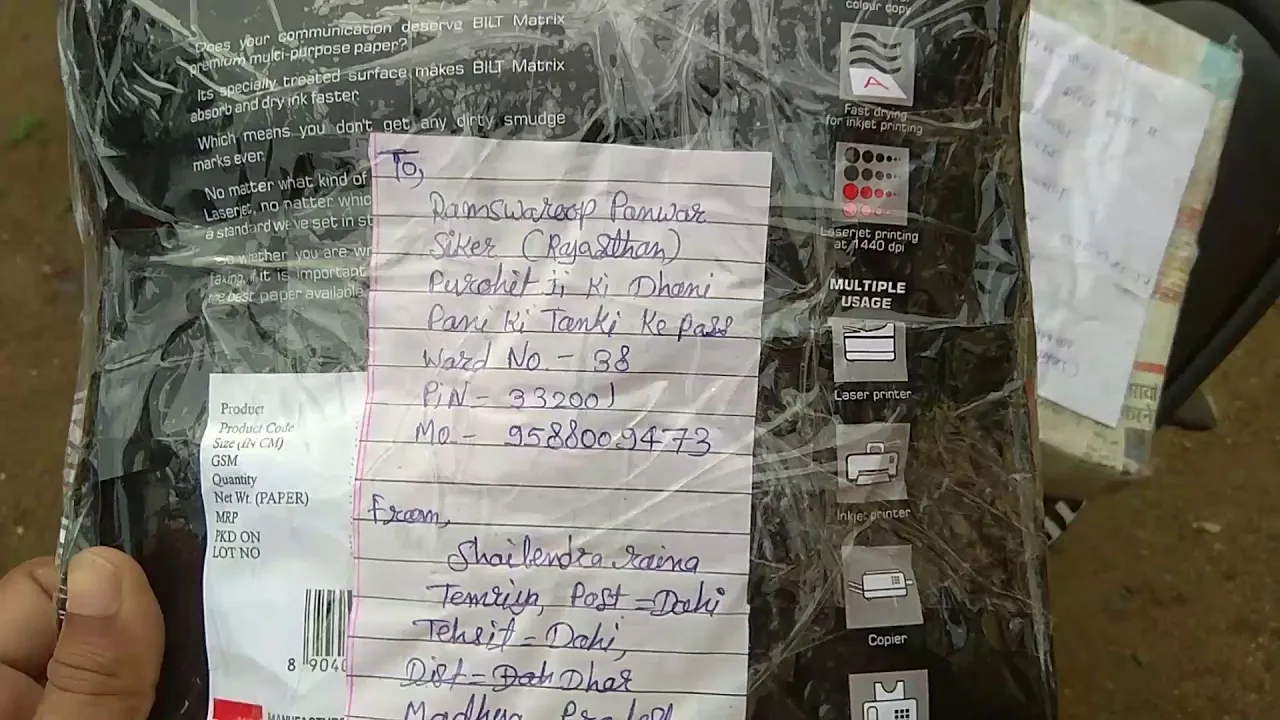 colour copy
Does your communication deserve BILT Matrix
premium multi-purpose paper?
Its specially treated surface makes BILT Matrix
absorb and dry ink faster
Which means you don't get any dirty smudge
marks ever.
No matter what kind of
Laserjet, no matter whic
a standard we've set in st
So whether you are wr
faxing, if it is important
the best paper available
A
Fast drying
for inkjet printing
Laserjet printing
at 1440 dpi
MULTIPLE
USAGE
Laser printer
Inkjet printer
Copier
To,
Ramswaroop Panwar
Siker (Rajasthan)
Purohit ji Ki Dhani
Pani Ki Tanki Ke Pass
Ward No. - 38
PiN - 332001
Mo - 9588009473
From,
Shailendra raina
Temriya, Post = Dahi
Tehsit = Dahi,
Dist = Dhar
Madhya Prades
Product
Product Code
Size (IN CM)
GSM
Quantity
Net Wt. (PAPER)
MRP
PKD ON
LOT NO
8 9040
MANUFACTURE